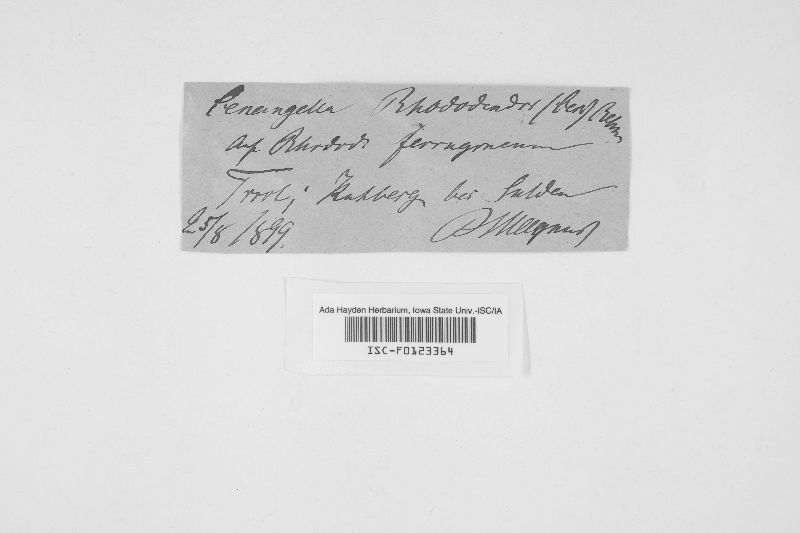 Cenangella Rhododendri (Ces) Rehm
Auf Rhodod. ferrugineum
Tyrol; Kuhberg bei Sulden
25/8 1899. P Magnus
Ada Hayden Herbarium, Iowa State Univ.-ISC/IA
ISC-F0123364